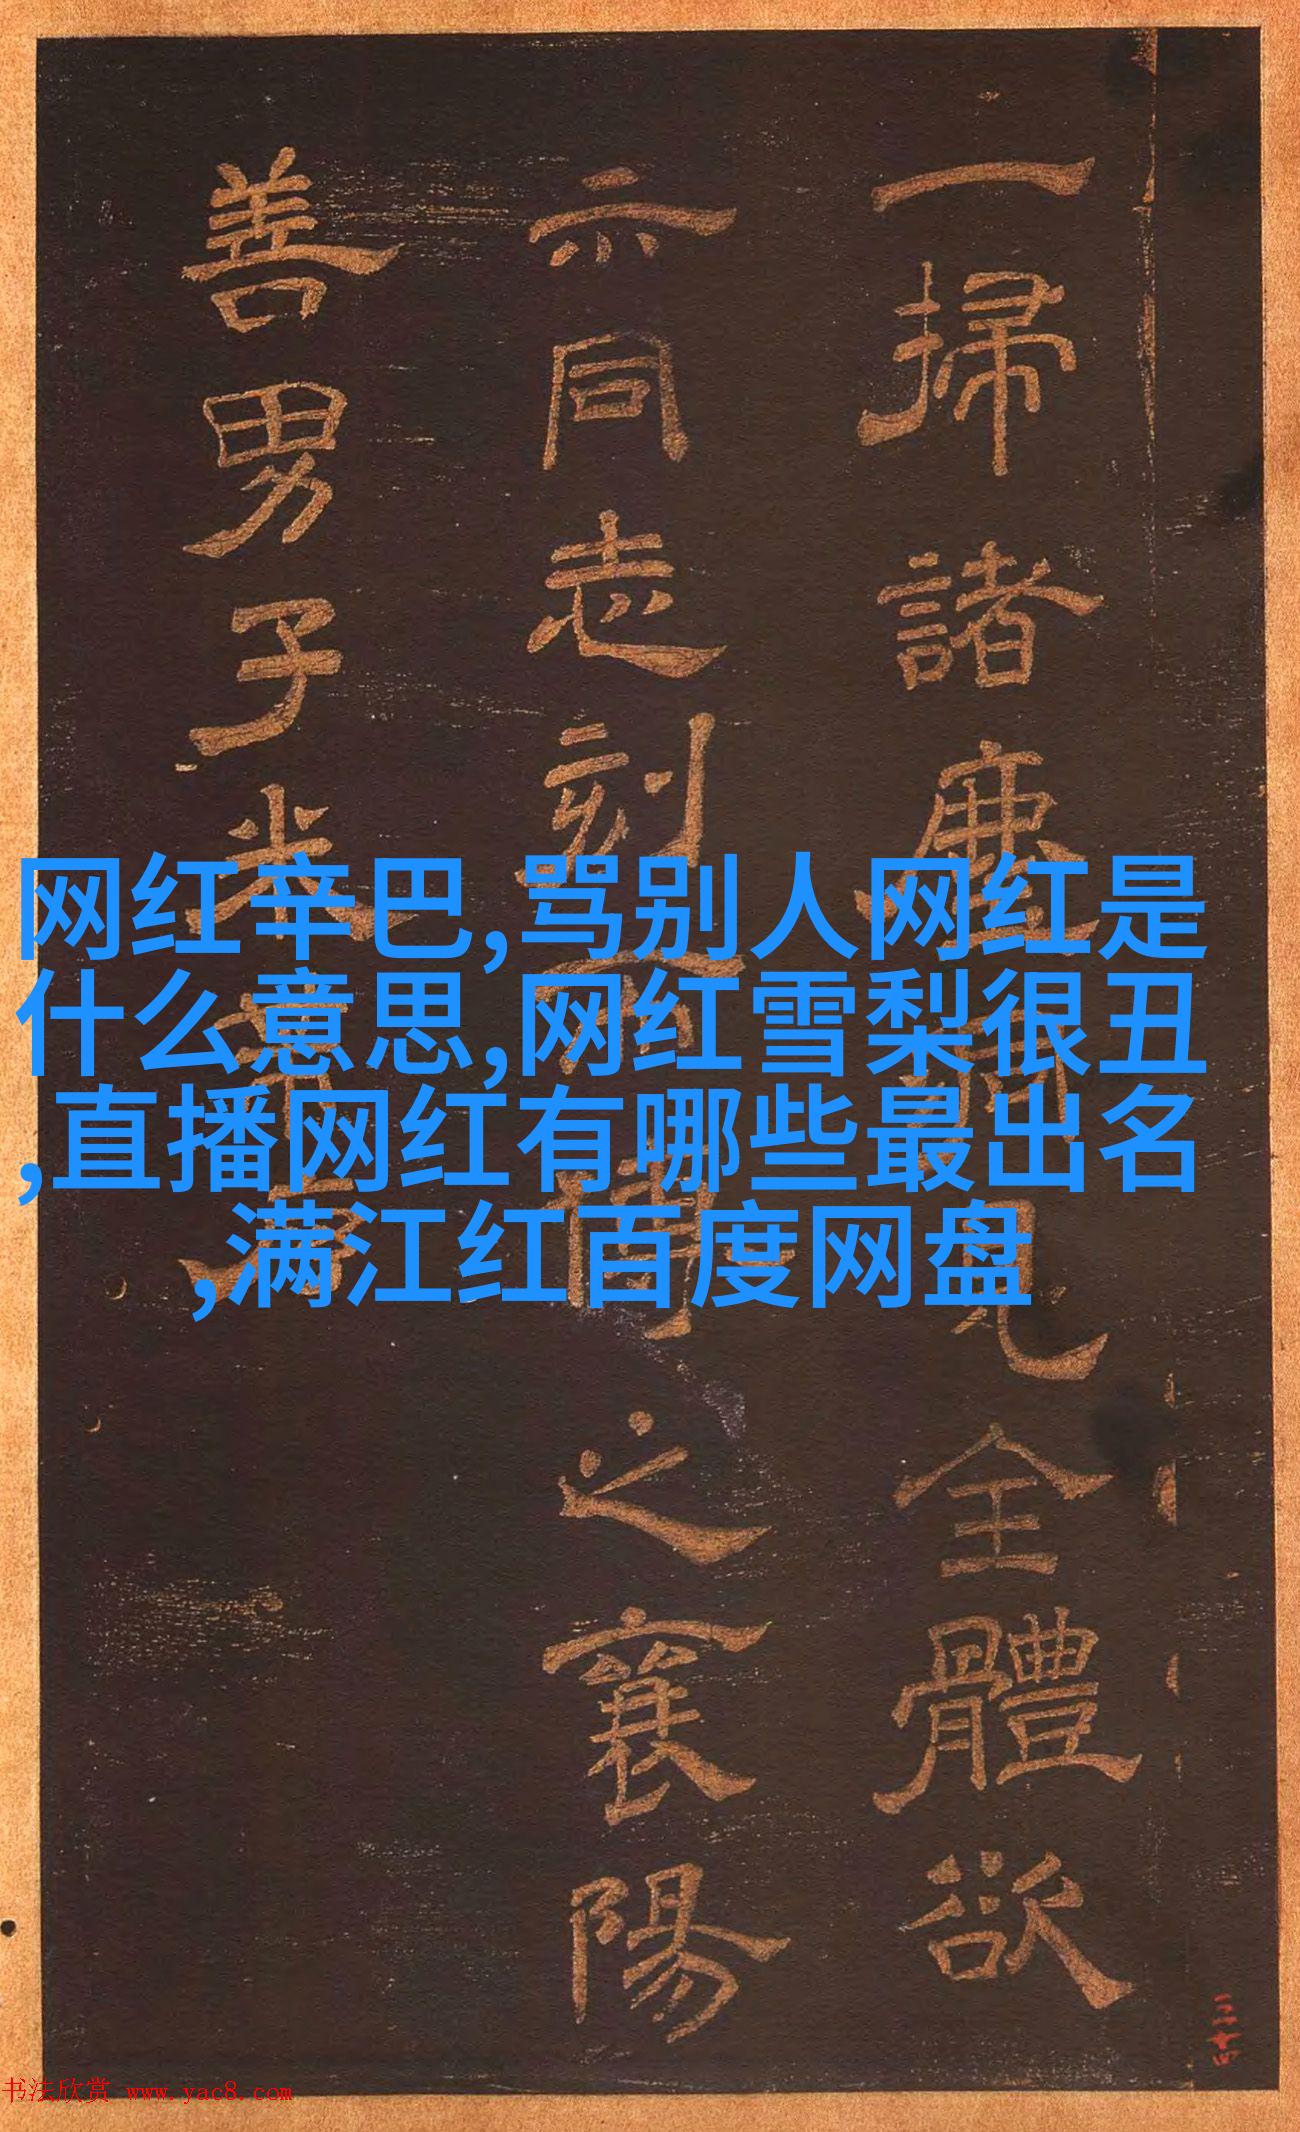 一掃諸見全體欲
示同志刻之襄陽
善男子米
网红辛巴,骂别人网红是
什么意思,网红雪梨很丑
,直播网红有哪些最出名
,满江红百度网盘
书法欣赏 www.yac8.com